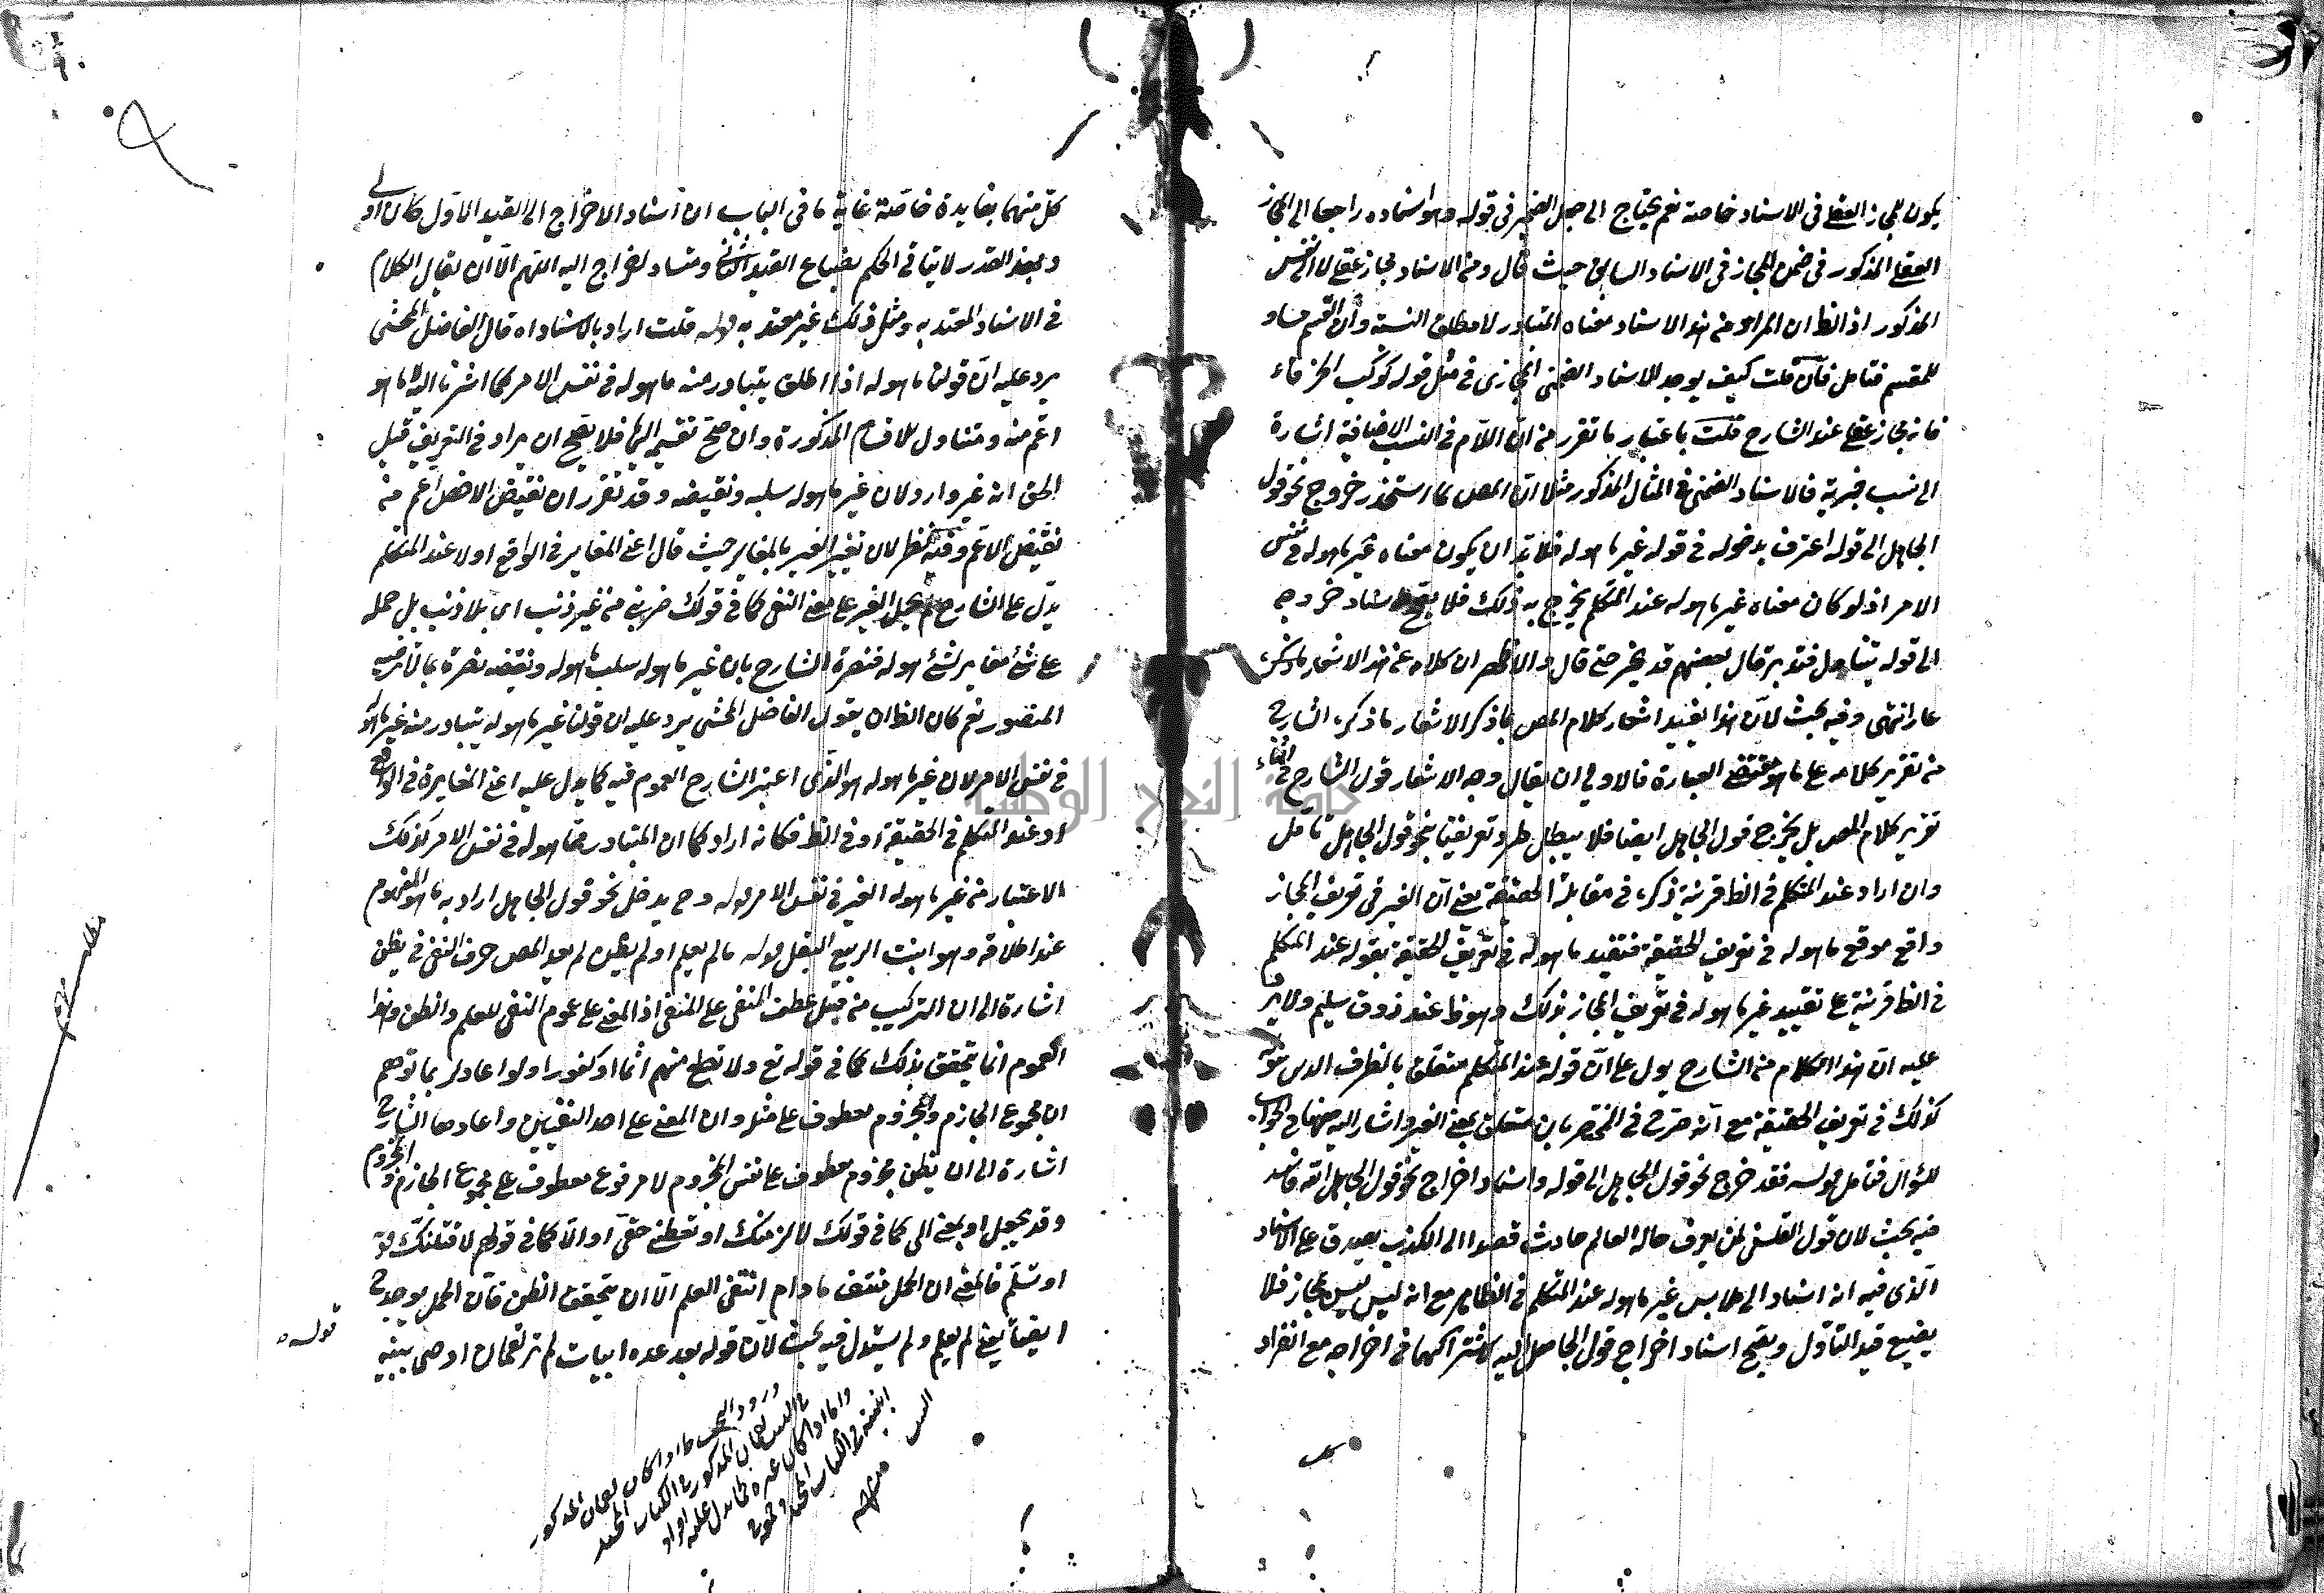 يكون للمجاز العقلي في الاسناد خاصة نعم يحتاج الى جعل الضمير في قوله وهو اسناده راجعا الى المجاز
العقلي المذكور في ضمن المجاز في الاسناد السابق حيث قال ومن الاسناد مجاز عقلي لا الى نفس
المذكور اذ الظ ان المراد من هذا الاسناد معناه المتبادر لا مطلق النسبة وأن القسم مساو
للمقسم فتامل فان قلت كيف يوجد الاسناد الضمني المجازي في مثل قوله كوكب الخرقاء
فانه مجاز عقلي عند الشارح قلت باعتبار ما تقرر من ان اللام في النسب الاضافية اشارة
الى نسب خبرية فالاسناد الضمني في المثال المذكور مثلا ان المص لما استحذر خروج نحو قول
الجاهل الى قوله اعترف بدخوله في قوله غير ما هو له فلا بد ان يكون معناه غير ما هو له في نفس
الامر اذ لو كان معناه غير ما هو له عند المتكلم يخرج به ذلك فلا يصح اسناد خروجه
الى قوله بتأول فتدبر قال بعضهم قد يخر حتى قال والاظهر ان كلامه عن هذا الاشعار ما ذكره
عار انتهى وفيه بحث لأن هذا يفيد اشعار كلام المص بما ذكر الاشعار ما ذكره الشارح
من تقرير كلامه على ما هو مقتضى العبارة فالاولى ان يقال وجه الاشعار قول الشارح في اثناء
تقرير كلام المص بل يخرج قول الجاهل ايضا فلا يبطل طرد تعريفنا بنحو قول الجاهل تامل
وان اراد عند المتكلم في الظ قرينة ذكره في مقابلة الحقيقة يعني أن الغير في تعريف المجاز
واقع موقع ما هو له في تعريف الحقيقة فتقييد ما هو له في تعريف الحقيقة بقوله عند المتكلم
في الظ قرينة على تقييد غير ما هو له في تعريف المجاز بذلك وهو ظ عند ذوق سليم ولا يرد
عليه ان هذا الكلام من الشارح يدل على أن قوله عند المتكلم متعلق بالظرف
كذلك في تعريف الحقيقة مع أنه صرح في المختصر بان متعلق بمعنى الغير واشار اليه ههنا في الجواب
للسؤال فتامل قوله فقد خرج نحو قول الجاهل الى قوله واسناد اخراج نحو قول الجاهل اليه فاسد
فيه بحث لان قول الفلسفي لمن يعرف حاله العالم حادث قصدا الى الكذب يصدق على الاسناد
الذي فيه انه اسناد الى ملابس غير ما هو له عند المتكلم في الظاهر مع انه ليس بمجاز فلا
يضيع قيد التأول ويصح اسناد اخراج قول الجاهل اليه لاشتراكهما في اخراجه مع انفراد
كل منهما بفايدة خاصة غاية ما في الباب ان اسناد الاخراج الى القيد الاول كان اولى
وبهذا القدر لا يتأتى الحكم بضياع القيد الثاني وفساد اخراج اليه اللهم الا ان يقال الكلام
في الاسناد المعتد به ومثل ذلك غير معتد به قوله قلت اراد بالاسناد اه قال الفاضل المحشي
يرد عليه ان قولنا ما هو له اذا اطلق يتبادر منه ما هو له في نفس الامر كما اشرنا اليه لا ما هو
اعم منه ومتناول للاقسام المذكورة وان صح تقسيمه اليها فلا يصح ان يراد في التعريف قيل
الحق انه غير وارد لان غير ما هو له سلبه ونقيضه وقد تقرر ان نقيض الاخص اعم من
نقيض الاعم وفيه نظر لان تفسير الغير بالمغاير حيث قال اعني المغاير في الواقع اولا عند المتكلم
يدل على الشارح لم يحمل الغير على معنى النفي كما في قولك ضربني من غير ذنب اي بلا ذنب بل حمله
على شئ مغاير لشئ هو له فنصرة الشارح بان غير ما هو له سلب ما هو له ونقيضه نصرة بما لا يرضيه
المنصور نعم كان الظ ان يقول الفاضل المحشي يرد عليه ان قولنا غير ما هو له يتبادر منه غير ما هو له
في نفس الامر لان غير ما هو له هو الذي اعتبر الشارح العموم فيه كما يدل عليه اعني المغايرة في الواقع
او عند المتكلم في الحقيقة او في الظ فكانه اراد كما ان المتبادر مما هو له في نفس الامر كذلك
الاعتبار من غير ما هو له الغير في نفس الامر قوله وح يدخل نحو قول الجاهل اراد به ما هو المفهوم
عند اطلاقه وهو انبت الربيع البقل قوله ما لم يعلم او لم يظن لم يعد المص حرف النفي في يظن
اشارة الى ان التركيب من قبيل عطف المنفي على المنفي اذ المعنى على عموم النفي للعلم والظن وهذا
العموم انما يتحقق بذلك كما في قوله تع ولا تطع منهم آثما او كفورا ولو اعاد لربما توهم
ان مجموع الجازم والمجزوم معطوف على مثله وان المعنى على احد النفيين واعادها الشارح
اشارة الى ان يظن مجزوم معطوف على نفس المجزوم لا مرفوع معطوف على مجموع الجازم والمجزوم
وقد يجعل او بمعنى الى كما في قولك لالزمنك او تعطيني حقي او الا كما في قولهم لاقتلنك
او تسلم فالمعنى ان الحمل منتف ما دام انتفى العلم الا ان يتحقق الظن فان الحمل يوجد ح
ايضا يعني لم يعلم ولم يستدل فيه بحث لان قوله بعد عدة ابيات لم تر لقمان اوصى بنيه
قوله